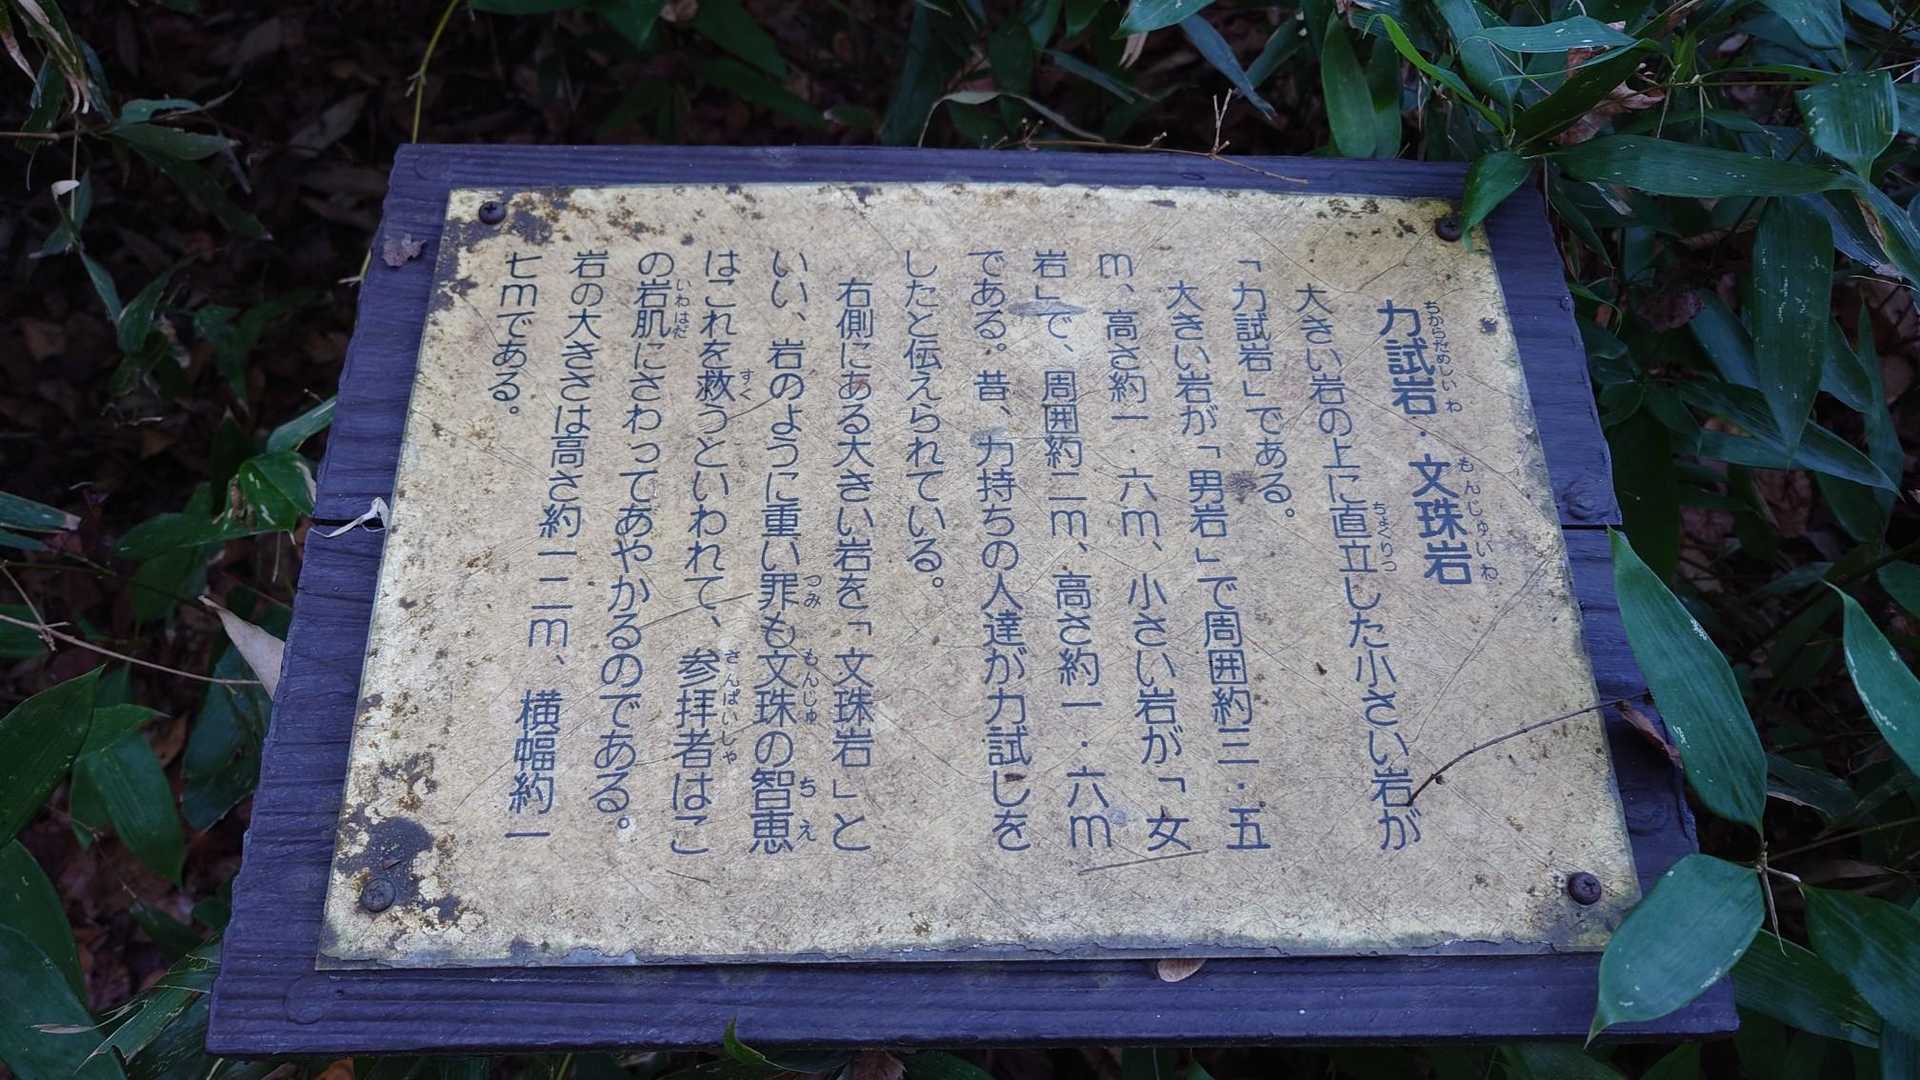 力試岩・文珠岩
ちからだめしいわ もんじゅいわ
大きい岩の上に直立した小さい岩が
ちょくりつ
「力試岩」である。
大きい岩が「男岩」で周囲約三・五
m、高さ約一・六m、小さい岩が「女
岩」で、周囲約二m、高さ約一・六m
である。昔、力持ちの人達が力試しを
したと伝えられている。
右側にある大きい岩を「文珠岩」と
いい、岩のように重い罪も文珠の智恵
つみ もんじゅ ちえ
はこれを救うといわれて、参拝者はこ
すく さんぱいしゃ
の岩肌にさわってあやかるのである。
いわはだ
岩の大きさは高さ約一二m、横幅約一
七mである。